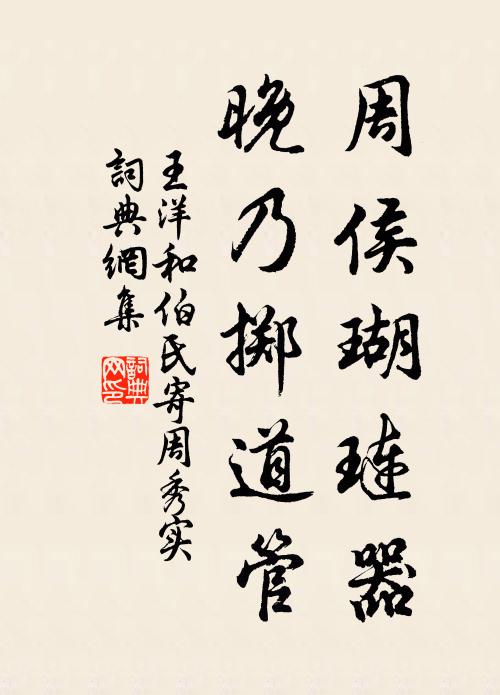 周侯瑚琏器
晚乃掷道管
王洋和伯氏寄周秀实
詞典網集
詞典网印